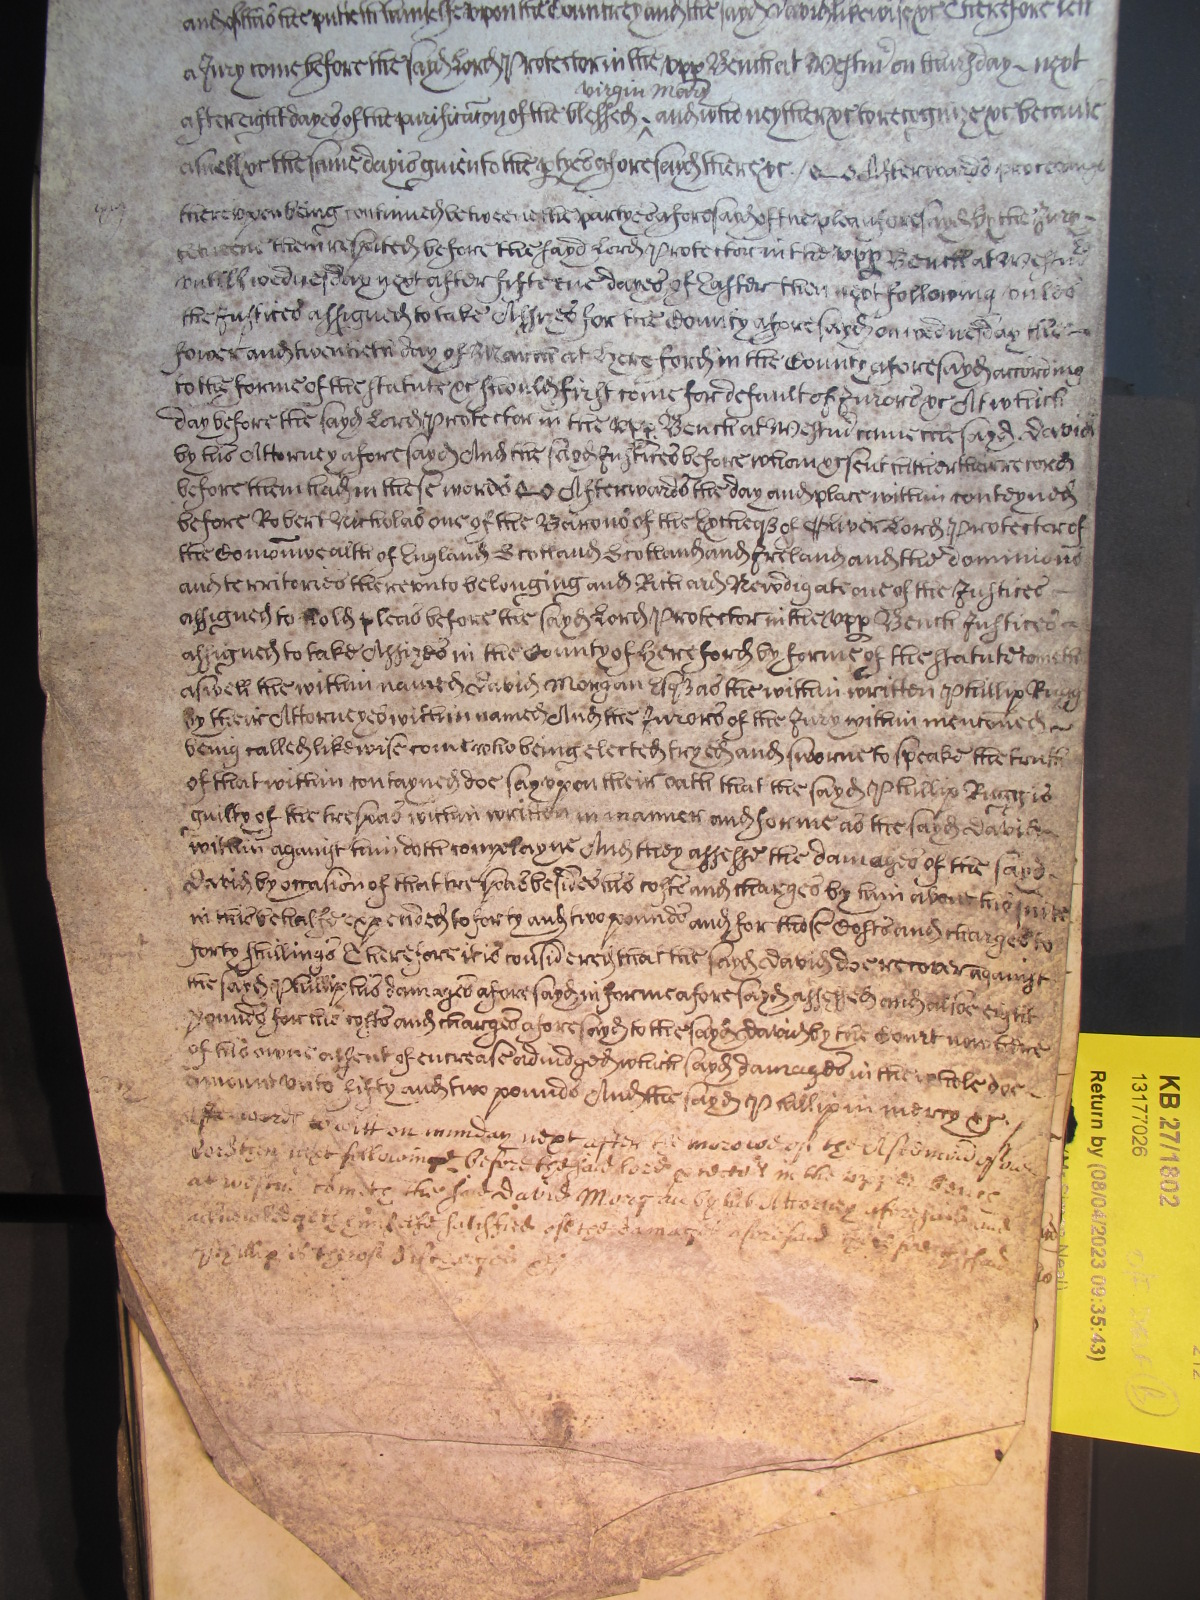 and of this hee putteth himselfe upon the Countrey and the sayd David likewise &c Therefore lett
a Jury come before the sayd Lord Protector in the upp Bench at Westmr on thursday next
virgin Mary
after eight dayes of the purificacon of the blessed ^ and who neyther &c to recognize &c because
aswell &c the same day is given to the ptyes aforesayd there &c / Afterwards processe
thereupon being continued betweene the partyes aforesayd of the plea aforesayd by the Jury
betweene them respited before the sayd Lord Protector in the upp Bench at Westmr
untill wednesday next after fifteene dayes of Easter then next following unles
the Justices assigned to take Assizes for the County aforesayd on wednesday the
fower and twentieth day of March at Hereford in the County aforesayd according
to the forme of the statute &c should first come for default of Jurors &c At which
day before the sayd Lord Protector in the upp Bench at Westmr came the sayd David
by his Attorney aforesayd And the sayd Justices before whom &c sent hither their record
before them had in these words Afterwards the day and place within conteyned
before Robert Nicholas one of the Barons of the Excheqr of Oliver Lord Protector of
the Comonwealth of England Scotland Scotland and Ireland and the dominions
and territories thereunto belonging and Richard Newdigate one of the Justices
assigned to hold pleas before the sayd Lord Protector in the upp Bench Justices
assigned to take Assizes in the County of Hereford by forme of the statute cometh
aswell the within named David Morgan Esqr as the within written Phillip Rugg
by their Attorneyes within named And the Jurors of the Jury within mencioned
being called likewise come who being elected tryed and sworne to speake the truth
of that within contayned doe say upon their oath that the sayd Phillip Rugg is
guilty of the trespas within written in manner and forme as the sayd David
within against him doth complayne And they assesse the damages of the sayd
David by occasion of that trespas besides his costs and charges by him about his suite
in this behalfe expended to forty and two pounds and for those Costs and charges to
forty shillings Therefore it is considered that the sayd David doe recover against
the sayd Phillip his damages aforesayd in forme aforesayd assessed and alsoe eight
pounds for his costs and charges aforesayd to the sayd David by the Court now here
of his owne assent of encrease adiudged which sayd damages in the whole doe
amount unto fifty and two pounds And the sayd Phillip in mercy &c
Afterwards to witt on munday next after the morowe of the Ascencion of our
Lord then next following before the said Lord Protector in the upper Bench
at Westmr cometh the said David Morgan by his Attorney aforesaid and
acknowledgeth himselfe satisfied of the damages aforesaid Therefore the said
Phillip is thereof discharged &c
KB 27/1802
13177026
Return by (08/04/2023 09:35:43)